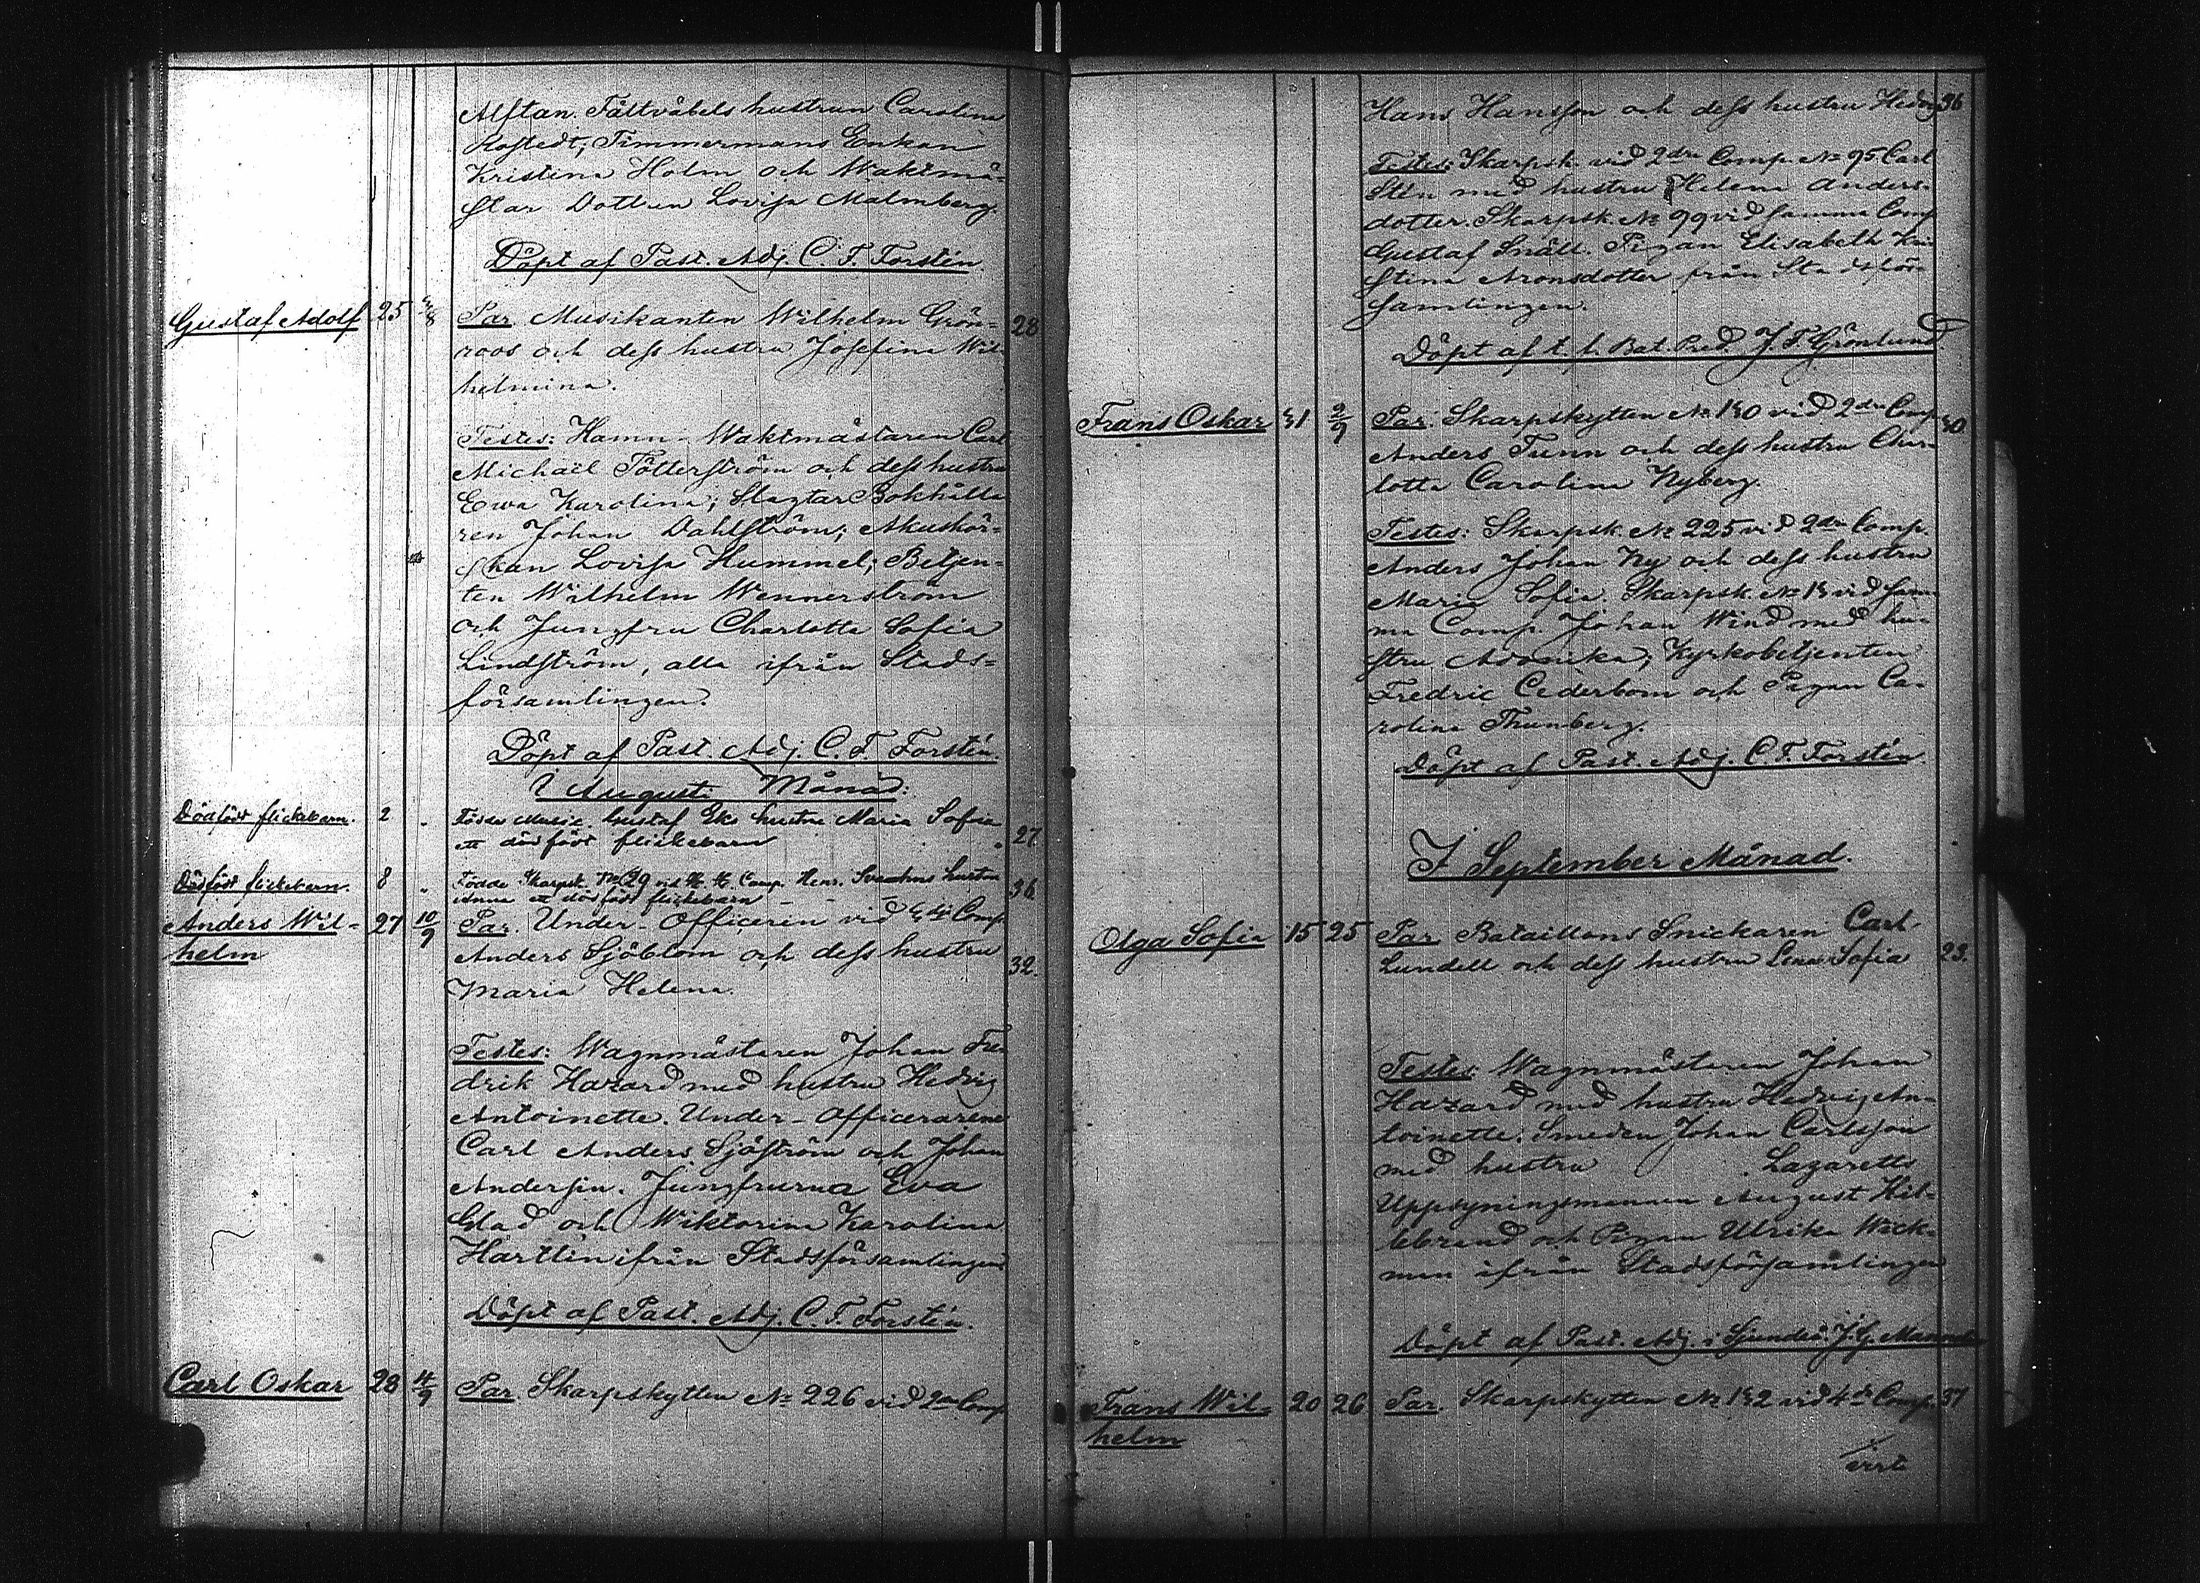 Alftan. Fältväbels hustrun Carolina
Timmermans Enkan
Kristina Holm och Waktmä-
star Dottren Lovisa Malmberg.
Döpt af Past. Adj. C. F. Forstén.
Gustaf Adolf 25 Par. Musikanten Wilhelm Grön- 28
roos och dess hustru Josefina Wil-
helmina.
Testes: Hamn-Waktmästaren Carl
Michaël Tötterström och dess hustru
Ewa Karolina; Slagtar Bokhålla
ren Johan Dahlström; Akushör-
skan Lovisa Hummel; Betjen-
ten Wilhelm Wennerström
och Jungfru Charlotta Sofia
Lindström, alla ifrån Stads-
församlingen.
Döpt af Past. Adj. C. F. Forstén.
I Augusti Månad:
Dödfödt flickebarn. 2 " Födde Music Gustaf Eks hustru Maria Sofia
ett dödfödt flickebarn 27
Dödfödt flickebarn. 8 " Födde Skarpsk. No 29 vid Comp. Henr. hustru
Anna ett dödfödt flickebarn 36
Anders Wil- 27 10/9 Par. Under-Officeren vid Comp
helm Anders Sjöblom och dess hustru 32.
Maria Helena.
Testes: Wagnmästaren Johan Fre-
drik Hazard med hustru Hedvig
Antoinette. Under-Officerarene
Carl Anders Sjöström och Johan
Andersin. Jungfrurna Eva
Glad och Wiktorina Karolina
Hartlin ifrån Stadsförsamlingen
Döpt af Past. Adj. C. F. Forstén.
Carl Oskar 28 4/9 Par. Skarpskytten No 226 vid 2dra Comp
Hans Hansson och dess hustru Hedvig 36
Testes: Skarpsk. vid 2dra Comp. No 95 Carl
Stén med hustru Helena Anders-
dotter. Skarpsk. No 99 vid samma Comp
Gustaf Snäll. Pigan Elisabeth Kri-
stina Aronsdotter från Stadsför-
samlingen.
Döpt af t. f. Bat. Pred. J. F. Grönlund
Frans Oskar 31 2/9 Par. Skarpskytten No 130 vid 2dra Comp 30
Anders Tunn och dess hustru Char-
lotta Carolina Nyberg.
Testes: Skarpsk. No 225 vid 2dra Comp.
Anders Johan Ny och dess hustru
Maria Sofia. Skarpsk. No 13 vid sam-
ma Comp. Johan Wind med hu-
stru Adonika; Kyrkobetjenten
Fredric Cederbom och Pigan Ca-
rolina Thunberg.
Döpt af Past. Adj. C. F. Forstén.
I September Månad.
Olga Sofia 15 25 Par. Bataillons Snickaren Carl
Lundell och dess hustru Lena Sofia 23.
Testes: Wagnmästaren Johan
Hazard med hustru Hedvig An-
toinette. Smeden Johan Carlsson
med hustru . Lazaretts
Uppsyningsmannen August Hil-
lebrand och Pigan Ulrika Wick-
man ifrån Stadsförsamlingen
Döpt af Past. Adj. i Sjundeå J. G.
Frans Wil- 20 26 Par. Skarpskytten No 132 vid 4de Comp. 37
helm
vert